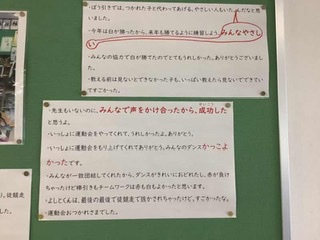 ・ぼう引きでは、つかれた子と代わってあげる、やさしい人もいたんだなと思
いました。
・今年は白が勝ったから、来年も勝てるように練習しよう。みんなやさし
い
・みんなの協力で白が勝てたのでとてもうれしかった。ありがとうございま
した。
・教える前は見ないとできなかった子も、いっぱい教えたら見ないでできてい
てすごかった。
・先生もいないのに、みんなで声をかけ合ったから、成功した
せいこう
と思うよ。
・いっしょに運動会をやってくれて、うれしかったよ。ありがとう。
・いっしょに運動会をもり上げてくれてありがとう。みんなのダンスかっこよ
かったです。
・みんなが一致団結してくれたから、ダンスがきれいにおどれたし、赤が負け
ちゃったけど棒引きもチームワークは赤も白もよかったと思います。
・よしとくんは、最後の最後で徒競走で抜かされちゃったけど、すごかったな。
・運動会おつかれさまでした。
徒競走